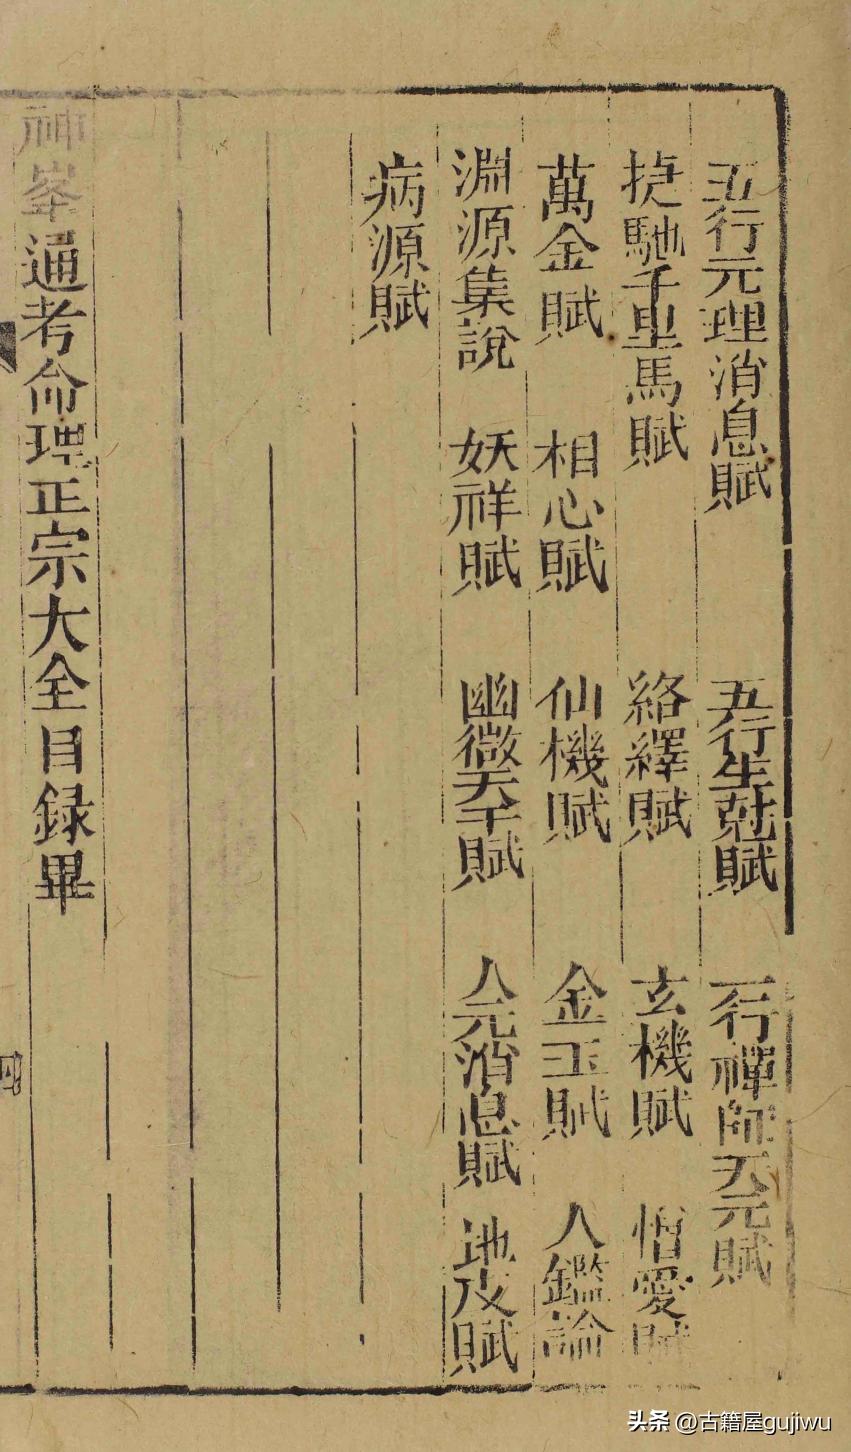 五行元理消息賦 五行生尅賦 一行禪師天元賦
捷馳千里馬賦 絡繹賦 玄機賦 憎愛賦
萬金賦 相心賦 仙機賦 金玉賦 人鑑論
淵源集說 妖祥賦 幽微天干賦 人元消息賦 地支賦
病源賦
神峯通考命理正宗大全目録畢
四
头条 @古籍屋gujiwu